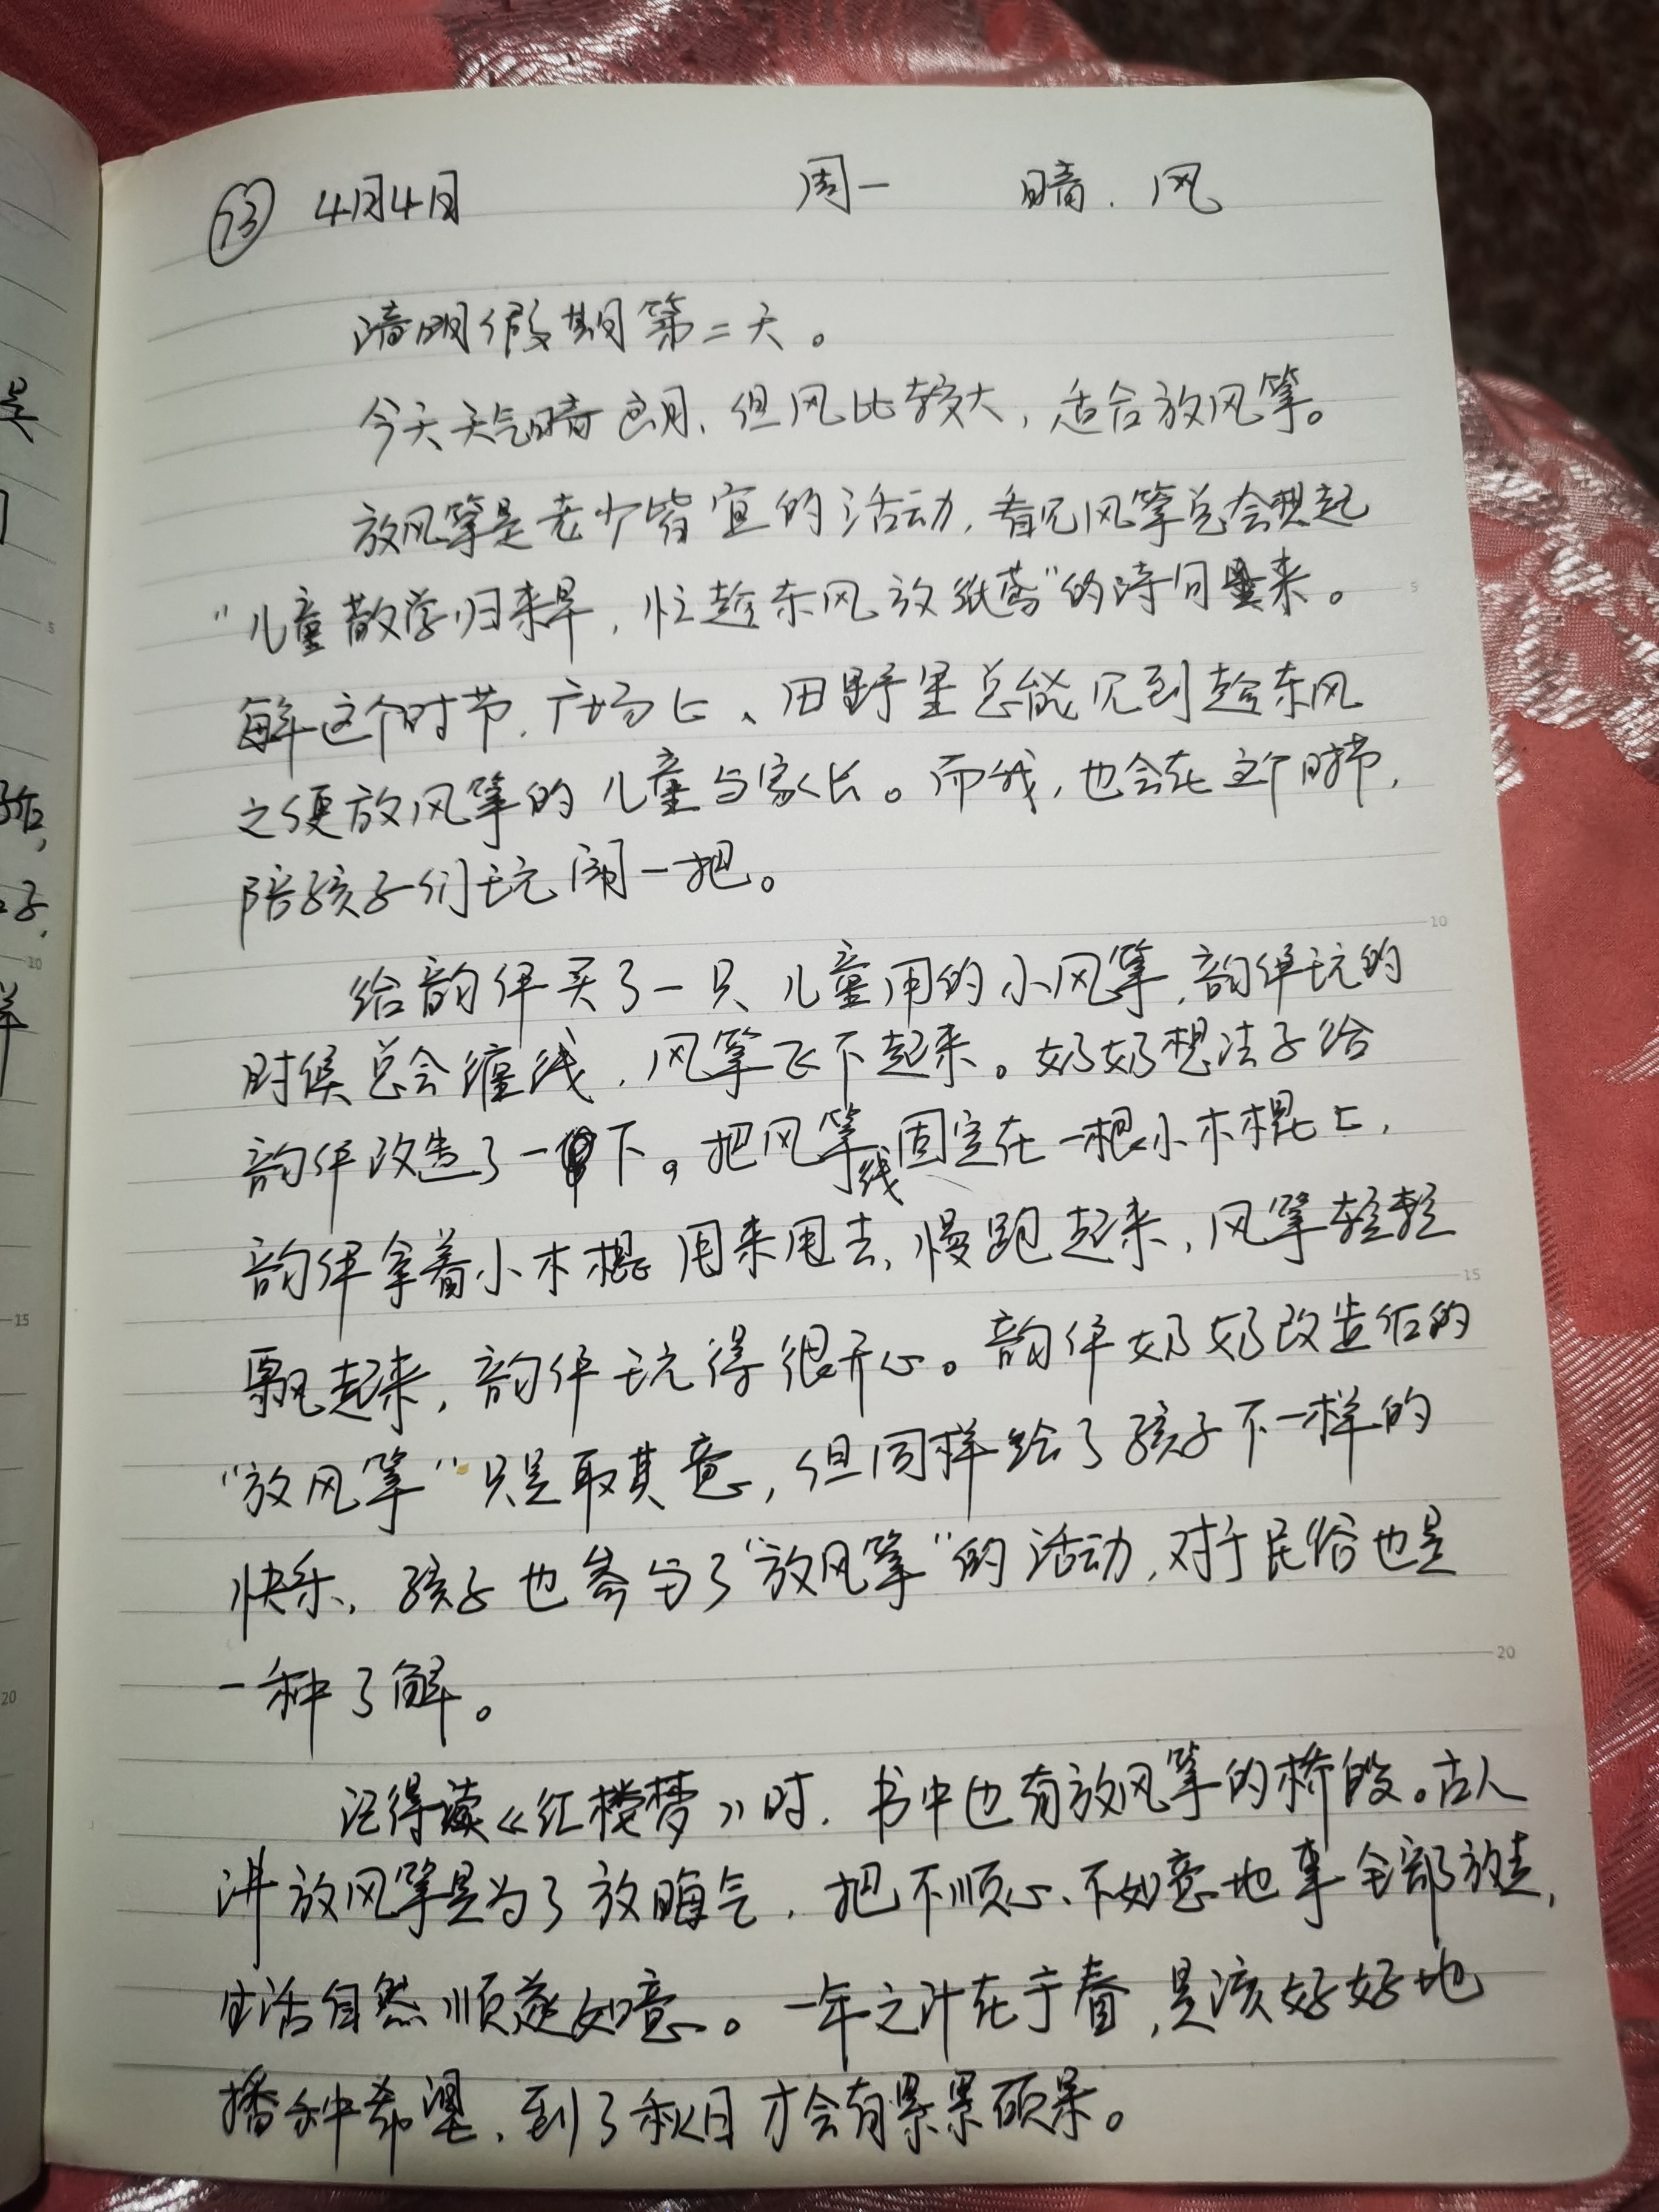 4月4日 周一 晴.风
清明假期第二天。
今天天气晴朗,但风比较大,适合放风筝。
放风筝是老少皆宜的活动,看见风筝总会想起
“儿童散学归来早,忙趁东风放纸鸢”的诗句来。
每年这个时节,广场上、田野里总能见到趁东风
之便放风筝的儿童与家长。而我,也会在这个时节,
陪孩子们玩闹一把。
给韵伊买了一只儿童用的小风筝,韵伊玩的
时候总会缠线,风筝飞不起来。奶奶想法子给
韵伊改造了一下。把风筝线固定在一根小木棍上,
韵伊拿着小木棍甩来甩去,慢跑起来,风筝轻轻
飘起来,韵伊玩得很开心。韵伊奶奶改造后的
“放风筝”只是取其意,但同样给了孩子不一样的
快乐,孩子也参与了“放风筝”的活动,对于民俗也是
一种了解。
记得读《红楼梦》时,书中也有放风筝的桥段。古人
讲放风筝是为了放晦气,把不顺心、不如意地事全部放走,
生活自然顺遂如意。一年之计在于春,是该好好地
播种希望,到了秋日才会有累累硕果。